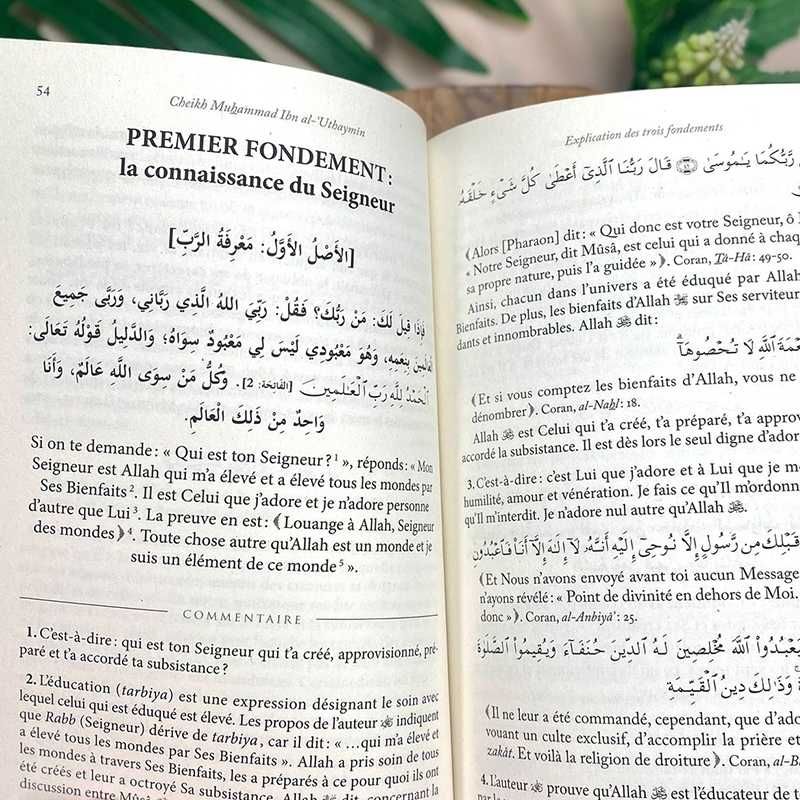 54
Cheikh Muhammad Ibn al-'Uthaymin
PREMIER FONDEMENT :
la connaissance du Seigneur
[الأَصْلُ الأَوَّلُ: مَعْرِفَةُ الرَّبِّ]
فَإِذَا قِيلَ لَكَ: مَنْ رَبُّكَ؟ فَقُلْ: رَبِّيَ اللهُ الَّذِي رَبَّانِي، وَرَبَّى جَمِيعَ
الْعَالَمِينَ بِنِعَمِهِ، وَهُوَ مَعْبُودِي لَيْسَ لِي مَعْبُودٌ سِوَاهُ؛ وَالدَّلِيلُ قَوْلُهُ تَعَالَى:
الْحَمْدُ لِلَّهِ رَبِّ الْعَالَمِينَ [الفَاتِحَة: 2]. وَكُلُّ مَنْ سِوَى اللَّهِ عَالَمٌ، وَأَنَا
وَاحِدٌ مِنْ ذَلِكَ الْعَالَمِ.
Si on te demande : « Qui est ton Seigneur ? ¹ », réponds : « Mon
Seigneur est Allah qui m'a élevé et a élevé tous les mondes par
Ses Bienfaits ². Il est Celui que j'adore et je n'adore personne
d'autre que Lui ³. La preuve en est : ﴾Louange à Allah, Seigneur
des mondes﴿ ⁴. Toute chose autre qu'Allah est un monde et je
suis un élément de ce monde ⁵ ».
COMMENTAIRE
1. C'est-à-dire : qui est ton Seigneur qui t'a créé, approvisionné, pré-
paré et t'a accordé ta subsistance ?
2. L'éducation (tarbiya) est une expression désignant le soin avec
lequel celui qui est éduqué est élevé. Les propos de l'auteur indiquent
que Rabb (Seigneur) dérive de tarbiya, car il dit : « …qui m'a élevé et
a élevé tous les mondes par Ses Bienfaits ». Allah a pris soin de tous
les mondes à travers Ses Bienfaits, les a préparés à ce pour quoi ils ont
été créés et leur a octroyé Sa subsistance. Allah ﷻ dit, concernant la
discussion entre Mûsâ
Explication des trois fondements
رَّبُّكُمَا يَٰمُوسَىٰ ﴿٤٩﴾ قَالَ رَبُّنَا ٱلَّذِيٓ أَعْطَىٰ كُلَّ شَيْءٍ خَلْقَهُۥ
﴾Alors [Pharaon] dit : « Qui donc est votre Seigneur, ô
« Notre Seigneur, dit Mûsâ, est celui qui a donné à chaq
sa propre nature, puis l'a guidée »﴿. Coran, Tâ-Hâ : 49-50.
Ainsi, chacun dans l'univers a été éduqué par Allah
Bienfaits. De plus, les bienfaits d'Allah ﷻ sur Ses serviteur
dants et innombrables. Allah ﷻ dit :
نِعْمَةَ ٱللَّهِ لَا تُحْصُوهَآ
﴾Et si vous comptez les bienfaits d'Allah, vous ne
dénombrer﴿. Coran, al-Nahl : 18.
Allah ﷻ est Celui qui t'a créé, t'a préparé, t'a approv
accordé ta subsistance. Il est dès lors le seul digne d'ador
3. C'est-à-dire : c'est Lui que j'adore et à Lui que je m
humilité, amour et vénération. Je fais ce qu'Il m'ordonn
qu'Il m'interdit. Je n'adore nul autre qu'Allah ﷻ.
قَبْلِكَ مِن رَّسُولٍ إِلَّا نُوحِيٓ إِلَيْهِ أَنَّهُۥ لَآ إِلَٰهَ إِلَّآ أَنَا۠ فَٱعْبُدُونِ
﴾Et Nous n'avons envoyé avant toi aucun Message
n'ayons révélé : « Point de divinité en dehors de Moi.
donc »﴿. Coran, al-Anbiyâ' : 25.
لِيَعْبُدُوا۟ ٱللَّهَ مُخْلِصِينَ لَهُ ٱلدِّينَ حُنَفَآءَ وَيُقِيمُوا۟ ٱلصَّلَوٰةَ
وَذَٰلِكَ دِينُ ٱلْقَيِّمَةِ
﴾Il ne leur a été commandé, cependant, que d'ado
vouant un culte exclusif, d'accomplir la prière et
zakât. Et voilà la religion de droiture﴿. Coran, al-B
4. L'auteur prouve qu'Allah ﷻ est l'éducateur